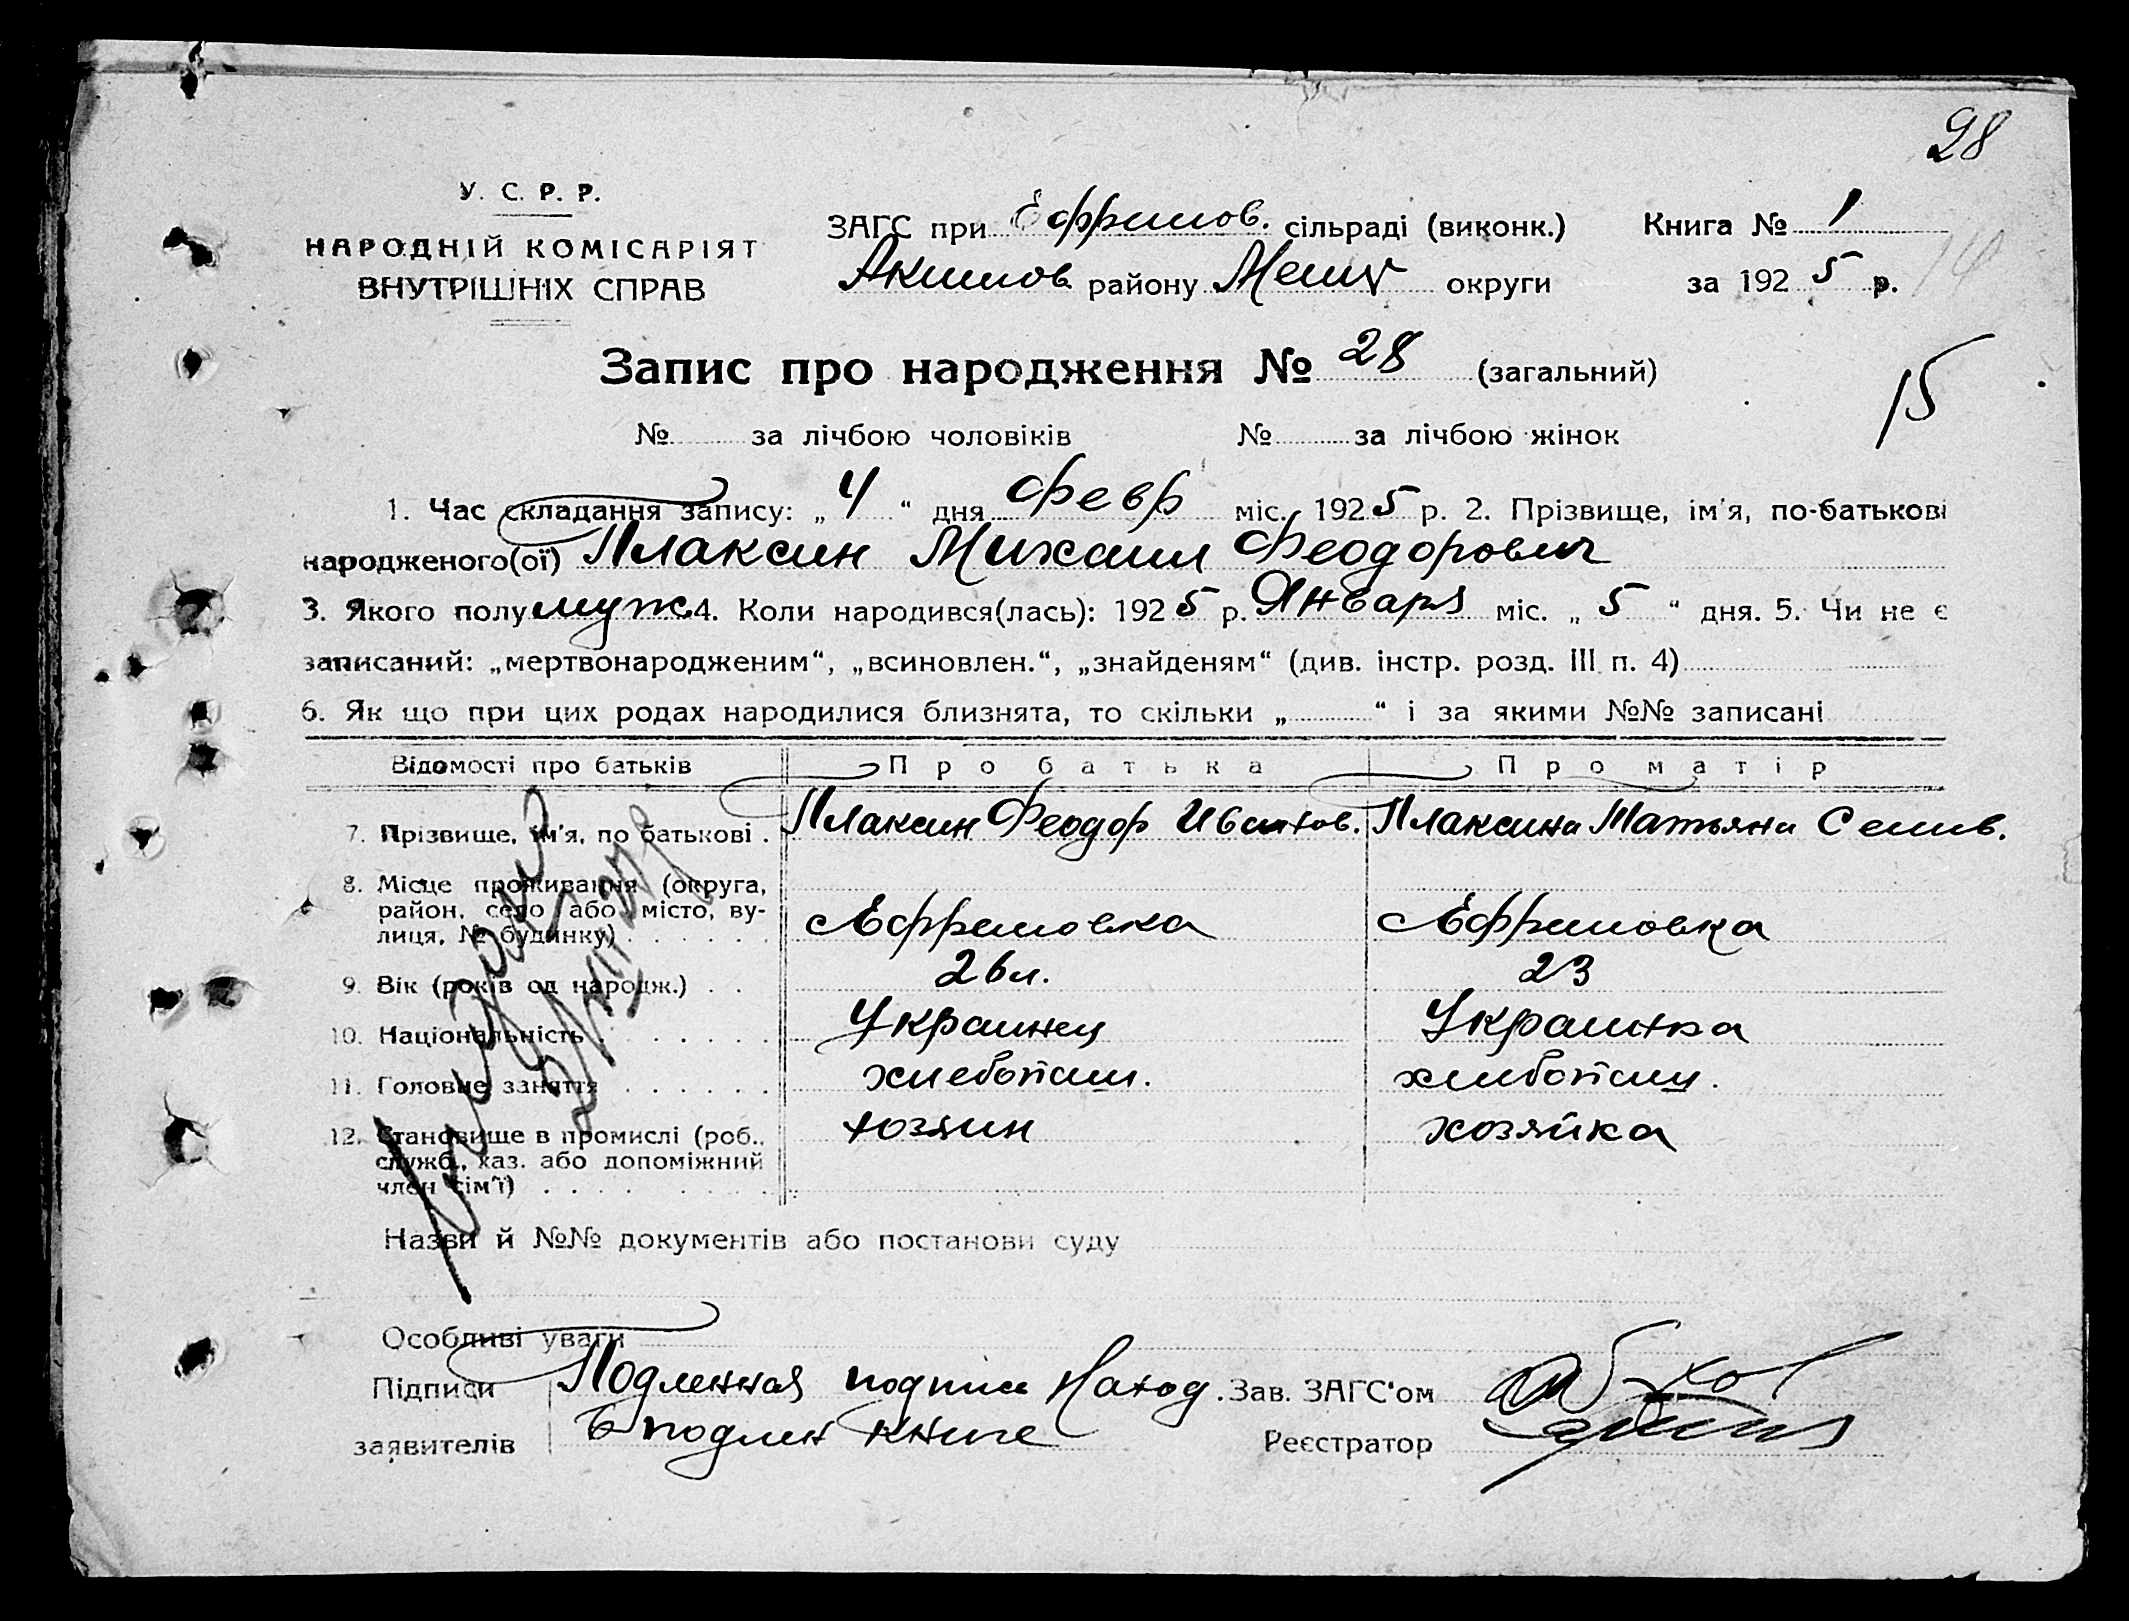 28
У. С. Р. Р.
НАРОДНІЙ КОМІСАРІЯТ
ВНУТРІШНІХ СПРАВ
ЗАГС при Ефремов. сільраді (виконк.) Книга № 1
Акимов району Мелит округи за 1925 р. 14
Запис про народження № 28 (загальний)
15
№ за лічбою чоловіків № за лічбою жінок
1. Час складання запису: „4“ дня Февр міс. 1925 р. 2. Прізвище, ім'я, по-батькові
народженого(ої) Плаксин Михаил Феодорович
3. Якого полу муж 4. Коли народився(лась): 1925 р. Января міс. „5“ дня. 5. Чи не є
записаний: „мертвонародженим“, „всиновлен.“, „знайденям“ (див. інстр. розд. III п. 4)
6. Як що при цих родах народилися близнята, то скільки „ “ і за якими №№ записані
Відомості про батьків Про батька Про матір
7. Прізвище, ім'я, по батькові . Плаксин Феодор Иванов. Плаксина Татьяна Семив.
8. Місце проживання (округа,
район, село або місто, ву-
лиця, № будинку) . . . . . . Ефремовка Ефремовка
9. Вік (років од народж.) . . 26 л. 23
10. Національність . . . . . . . Украинец Украинка
11. Головне заняття . . . . . . хлебопаш. хлибопаш.
12. Становище в промислі (роб., хозяин хозяйка
служб., хаз. або допоміжний
член сім'ї) . . . . . . . .
Назви й №№ документів або постанови суду
Особливі уваги
Підписи Подленная подпис Наход. Зав. ЗАГС'ом
заявителів В подлен книге Реєстратор